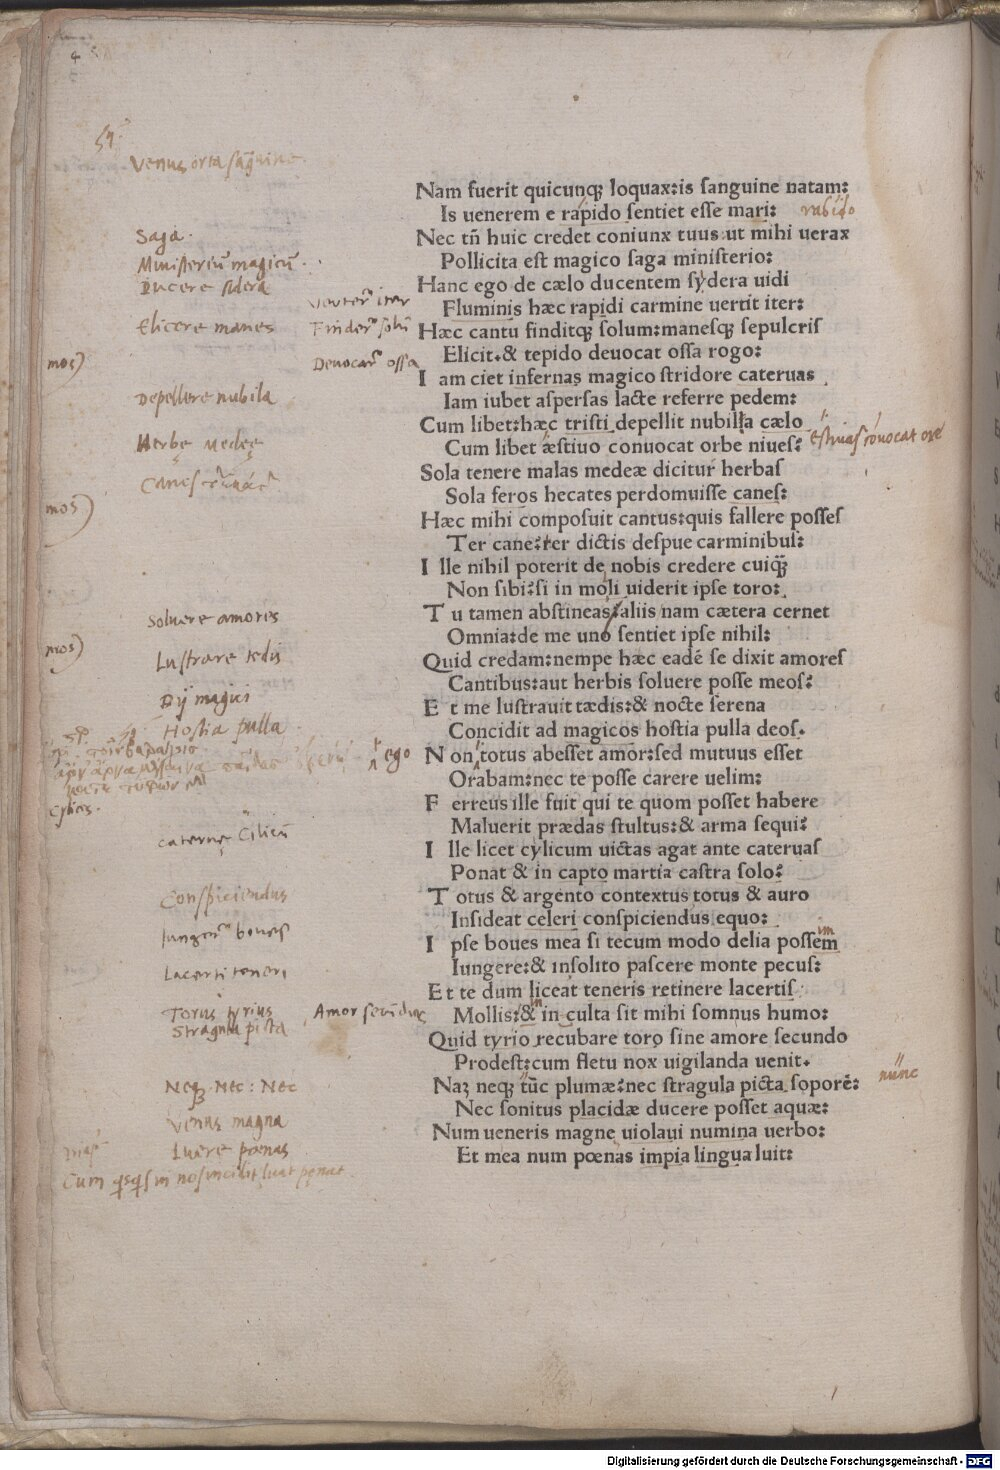 54
Venus orta sãguine
Nam fuerit quicunqꝫ loquax:is sanguine natam:
Is uenerem e rapido sentiet esse mari:
rabido
Saga
Nec tñ huic credet coniunx tuus:ut mihi uerax
Ministeriũ magicũ
Pollicita est magico saga ministerio:
Ducere sidera
Hanc ego de cælo ducentem sydera uidi
Fluminis hæc rapidi carmine uertit iter:
Elicere manes
Hæc cantu finditqꝫ solum:manesqꝫ sepulcris
Elicit.& tepido deuocat ossa rogo:
mos)
I am ciet infernas magico stridore cateruas
Depellere nubila
Iam iubet aspersas lacte referre pedem:
Cum libet:hæc tristi depellit nubilla cælo
Herbę Medeę
Cum libet æstiuo conuocat orbe niues:
Sola tenere malas medeæ dicitur herbas
Sola feros hecates perdomuisse canes:
mos)
Hæc mihi composuit cantus:quis fallere posses
Ter cane:ter dictis despue carminibus:
I lle nihil poterit de nobis credere cuiqꝫ
Non sibi:si in moli uiderit ipse toro:
Soluere amores
T u tamen abstineas:aliis nam cætera cernet
Omnia:de me uno sentiet ipse nihil:
mos)
Lustrare tedis
Quid credam:nempe hæc eadẽ se dixit amores
Cantibus:aut herbis soluere posse meos:
Dij magici
E t me lustrauit tædis:& nocte serena
Hostia pulla
Concidit ad magicos hostia pulla deos.
ego
N on totus abesset amor:sed mutuus esset
Orabam:nec te posse carere uelim:
F erreus ille fuit qui te quom posset habere
Maluerit prædas stultus:& arma sequi:
caternę Cilicũ
I lle licet cylicum uictas agat ante cateruas
Ponat & in capto martia castra solo:
Conspiciendus
T otus & argento contextus totus & auro
Insideat celeri conspiciendus equo:
I pse boues mea si tecum modo delia possem
im
Lacerti teneri
Iungere:& insolito pascere monte pecus:
Et te dum liceat teneris retinere lacertis
Torus tyrius
Mollis:& in culta sit mihi somnus humo:
in
Stragula picta
Quid tyrio recubare toro sine amore secundo
Prodest:cum fletu nox uigilanda uenit.
Neqꝫ. Nec: Nec
Naꝫ neqꝫ tũc plumæ:nec stragula picta soporẽ:
nunc
Nec sonitus placidæ ducere posset aquæ:
Venus magna
Num ueneris magne uiolaui numina uerbo:
Luere poenas
Et mea num pœnas impia lingua luit:
Digitalisierung gefördert durch die Deutsche Forschungsgemeinschaft - DFG